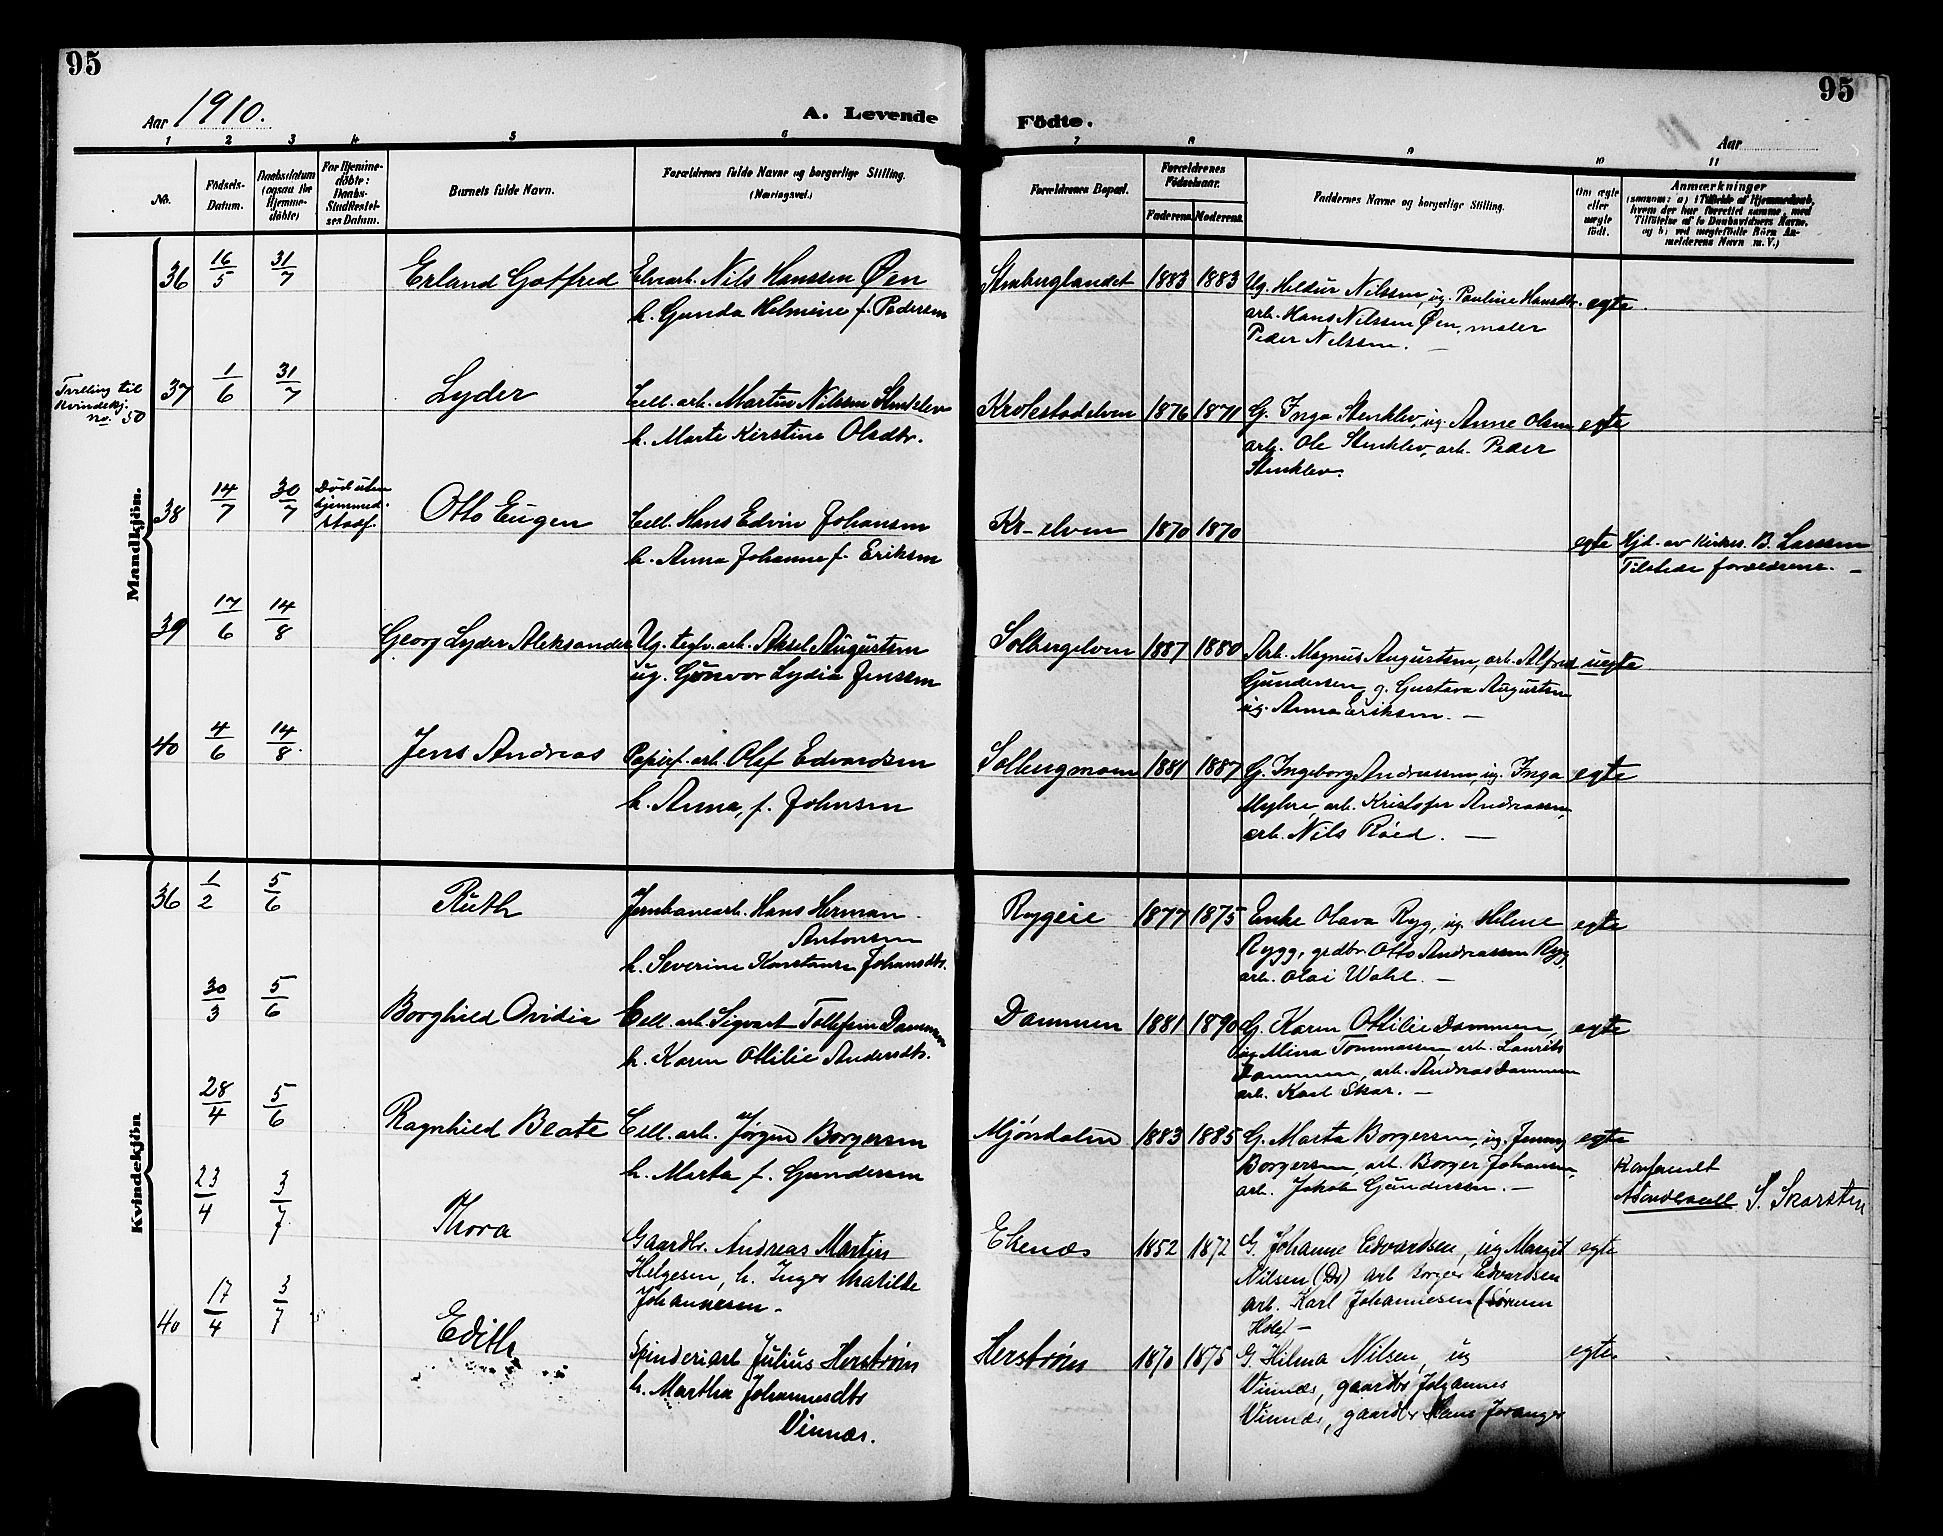 95
95
Aar 1910.
A. Levende
Födte.
Aar
1 2 3 4 5 6
7 8 9 10 11
No.
Födsels-
Datum.
Daabsdatum
(ogsaa for
Hjemme-
döbte)
For Hjemme-
döbte:
Daabs-
Stadfæstel-
ses Datum.
Barnets fulde Navn.
Forældrenes fulde Navne og borgerlige Stilling.
(Næringsvei.)
Forældrenes Bopæl.
Forældrenes
Födselsaar.
Faderens. Moderens.
Faddernes Navne og borgerlige Stilling.
Om ægte
eller
uægte
födt.
Anmærkninger
(saasom: a) i Tilfælde af Hjemmedaab,
hvem der har forrettet samme, med
Tilföielse af to Daabsvidners Navne,
og b) ved uægtefödte Börn An-
melderens Navn m. V.)
Mandkjön.
36 16/5 31/7 Erland Gotfred Elvearb. Nils Hanssen Øen
h. Gunda Helmine f. Pedersen
Stenberglandet 1883 1883 Ug. Heldur Nilssen, ug. Pauline Hansdtr.
arb. Hans Nilssen Øen, maler
Peder Nilssen. —
egte.
Tvilling til
Kvindekj.
no. 50
37 1/6 31/7 Lyder Cell. arb. Martin Nilssen Stenklev
h. Marte Kirstine Olsdtr.
Krokstadelven 1876 1871 G. Inga Stenklev, ug. Anne Olsen
arb. Ole Stenklev, arb. Peder
Stenklev.
egte
38 14/7 30/7 Död uten
hjemmed.
stadf.
Otto Eugen Cell. Hans Edvin Johansen
h. Anna Johanne f. Eriksen
Kr-elven 1870 1870
egte Hjd. av Kirkes. B. Larssen
Tilstede forældrene. —
39 17/6 14/8 Georg Lyder Aleksander Ug. teglv. arb. Aksel Augustsen
ug. Gunvor Lydia Jenssen
Solbergelven 1887 1880 Arb. Magnus Augustsen, arb. Alfred
Gundersen, g. Gustava Augustsen
ug. Anna Eriksen. —
uegte
40 4/6 14/8. Jens Andreas Papirf. arb. Olaf Edvardsen
h. Anna, f. Johnsen
Solbergmoen 1881 1887 G. Ingeborg Andreassen, ug. Inga
Myhre, arb. Kristofer Andreassen,
arb. Nils Röed. —
egte
Kvindekjön
36 1/2 5/6 Ruth Jernbanearb. Hans Herman
Antonsen
h. Severine Konstanse Johansdtr.
Ryggeie 1877 1875 Enke Olava Ryg, ug. Helene
Rygg, grdbr. Otto Andreassen Ryg,
arb. Olai Wahl. —
egte
30/3 5/6 Borghild Ovidia Cell. arb. Sigvart Tollefsen Dammen
h. Karen Ottilie Andersdtr.
Dammen 1881 1890 G. Karen Ottilie Dammen,
ug Mina Tommassen, arb. Laurits
Dammen, arb. Andreas Dammen
arb. Karl Skar. —
egte
28/4 5/6 Ragnhild Beate Cell. arb. Jørgen Borgersen
h. Marta f. Gundersen
Mjöndalen 1883 1885 G. Marta Borgersen, ug. Jenny
Borgersen, arb. Borger Johansen,
arb. Jakob Gundersen. —
egte
Konferert
S. Skarsten
23/4 3/7 Thora Gaardbr. Andreas Martin
Helgesen, h. Inger Matilde
Johannesen -
Ekenæs 1852 1872 G. Johanne Edvardsen, ug Margit
Nilsen (Ds) arb Borger Edvardsen
arb. Karl Johannesen (Sörum
Hole) —
egte
40 17/4 3/7 Edith Spinderiarb Julius Herström
h. Martha Johannesdtr
Vinnæs.
Herström 1870 1875 G. Hilma Nilsen, ug
Vinnæs, gaardbr Johannes
Vinnæs, gaardbr Hans Joranger
egte